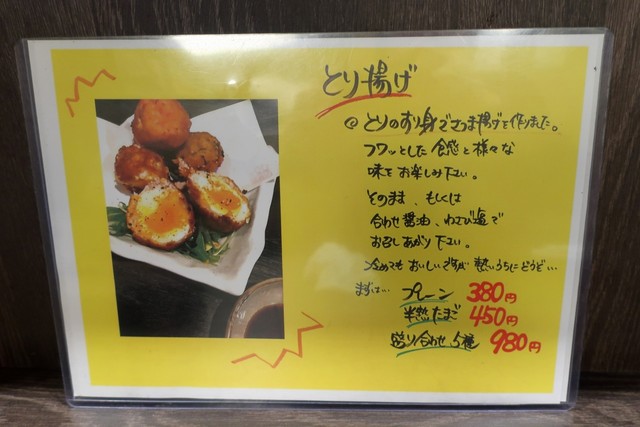 とり揚げ
◎ とりのすり身でさつま揚げを作りました。
フワッとした食感と様々な
味をお楽しみ下さい。
そのまま、もしくは
合わせ醤油、わさび塩で
お召しあがり下さい。
冷めてもおいしいですが熱いうちにどうぞ...
まずは... プレーン 380円
半熟たまご 450円
盛り合わせ 5種 980円